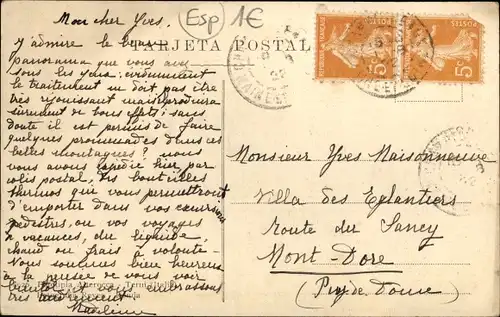 Mon cher Yves.
(Esp) 1€
J'y admire le beau
TARJETA POSTAL
panorama que vous avez
sous les yeux; evidemment
le traitement ne doit pas être
très réjouissant mais produira
sûrement de bons effets; sans
doute il est permis de faire
quelques promenades dans ces
belles montagnes? nous
vous avons expédié hier par
colis postal, les bouteilles
thermos qui vous permettront
d'emporter dans vos excursions
pédestres, ou vos voyages
de vacances, du liquide
chaud ou frais à volonté.
Nous sommes bien heureux
à la pensée de vous voir
bientôt et vous embrassons
très
Madeleine
5c
5c
Monsieur Yves Maisonneuve
Villa des Eglantiers
Route du Sancy
Mont-Dore
(Puy de Dome)